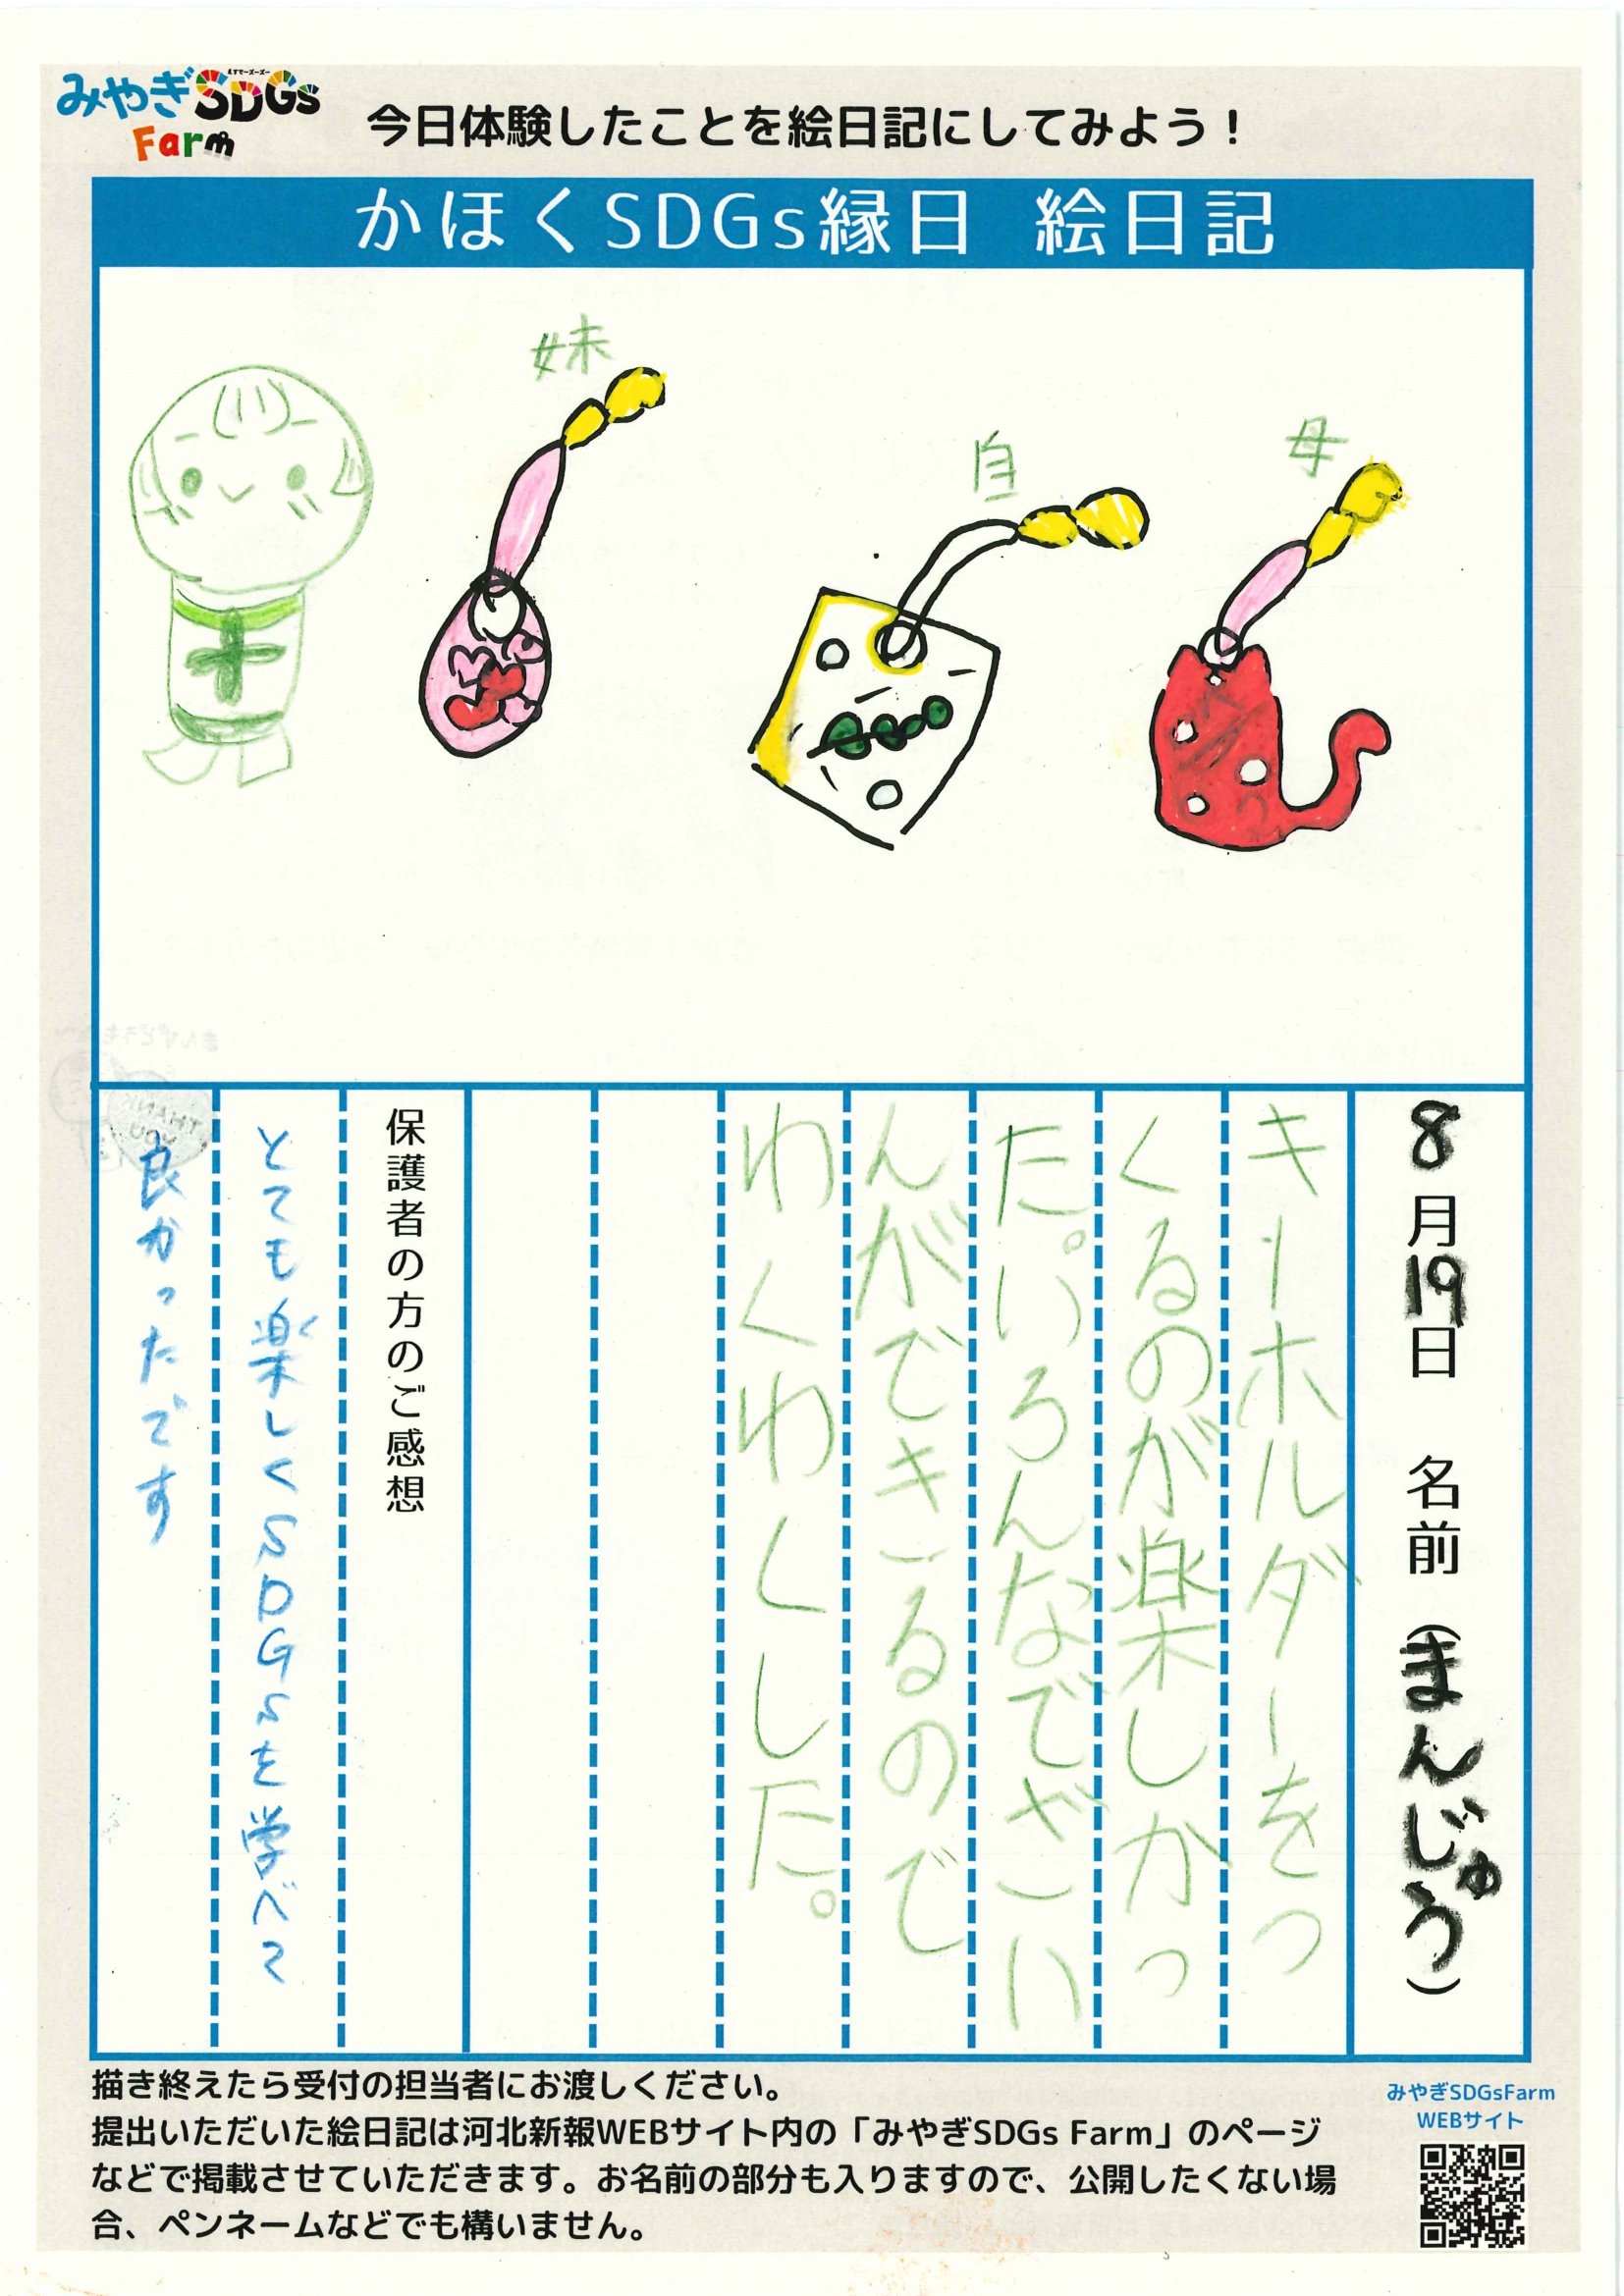 みやぎSDGs
Farm
今日体験したことを絵日記にしてみよう！
かほくSDGs縁日 絵日記
妹
自
母
8月19日 名前（まんじゅう）
キーホルダーをつ
くるのが楽しかっ
た。いろんなでざい
んができるので
わくわくした。
保護者の方のご感想
とても楽しくSDGsを学べて
良かったです
描き終えたら受付の担当者にお渡しください。
提出いただいた絵日記は河北新報WEBサイト内の「みやぎSDGs Farm」のページ
などで掲載させていただきます。お名前の部分も入りますので、公開したくない場
合、ペンネームなどでも構いません。
みやぎSDGsFarm
WEBサイト